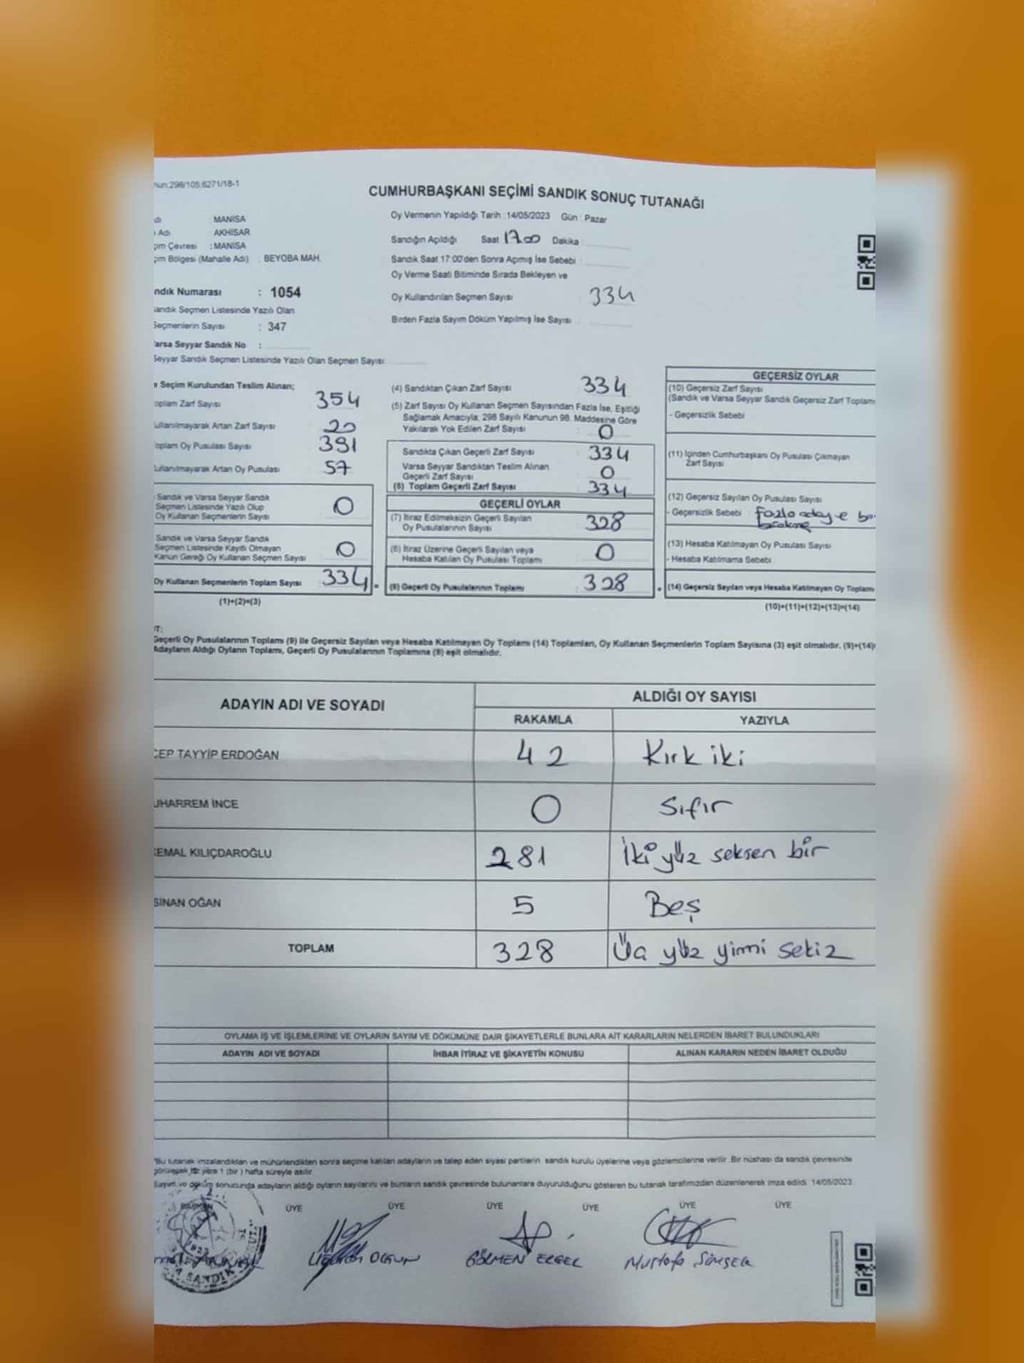 nun:298/105:6271/18-1
CUMHURBAŞKANI SEÇİMİ SANDIK SONUÇ TUTANAĞI
dı : MANİSA
Adı : AKHİSAR
çim Çevresi : MANİSA
çim Bölgesi (Mahalle Adı) : BEYOBA MAH.
ndık Numarası : 1054
Sandık Seçmen Listesinde Yazılı Olan
Seçmenlerin Sayısı : 347
Varsa Seyyar Sandık No :
Seyyar Sandık Seçmen Listesinde Yazılı Olan Seçmen Sayısı:
Oy Vermenin Yapıldığı Tarih : 14/05/2023 Gün : Pazar
Sandığın Açıldığı Saat 17.00 Dakika :
Sandık Saat 17:00'den Sonra Açımış İse Sebebi :
Oy Verme Saati Bitiminde Sırada Bekleyen ve
Oy Kullandırılan Seçmen Sayısı : 334
Birden Fazla Sayım Döküm Yapılmış İse Sayısı :
e Seçim Kurulundan Teslim Alınan;
oplam Zarf Sayısı : 354
ullanılmayarak Artan Zarf Sayısı : 20
oplam Oy Pusulası Sayısı : 391
ullanılmayarak Artan Oy Pusulası : 57
Sandık ve Varsa Seyyar Sandık
Seçmen Listesinde Yazılı Olup
Oy Kullanan Seçmenlerin Sayısı 0
Sandık ve Varsa Seyyar Sandık
Seçmen Listesinde Kayıtlı Olmayan
Kanun Gereği Oy Kullanan Seçmen Sayısı 0
Oy Kullanan Seçmenlerin Toplam Sayısı 334 =
(1)+(2)=(3)
(4) Sandıktan Çıkan Zarf Sayısı : 334
(5) Zarf Sayısı Oy Kullanan Seçmen Sayısından Fazla İse, Eşitliği
Sağlamak Amacıyla, 298 Sayılı Kanunun 98. Maddesine Göre
Yakılarak Yok Edilen Zarf Sayısı : 0
Sandıkta Çıkan Geçerli Zarf Sayısı : 334
Varsa Seyyar Sandıktan Teslim Alınan
Geçerli Zarf Sayısı : 0
(6) Toplam Geçerli Zarf Sayısı : 334
GEÇERLİ OYLAR
(7) İtiraz Edilmeksizin Geçerli Sayılan
Oy Pusulalarının Sayısı : 328
(8) İtiraz Üzerine Geçerli Sayılan veya
Hesaba Katılan Oy Pusulası Toplamı : 0
(9) Geçerli Oy Pusulalarının Toplamı : 328
GEÇERSİZ OYLAR
(10) Geçersiz Zarf Sayısı
(Sandık ve Varsa Seyyar Sandık Geçersiz Zarf Toplam
- Geçersizlik Sebebi
(11) İçinden Cumhurbaşkanı Oy Pusulası Çıkmayan
Zarf Sayısı
(12) Geçersiz Sayılan Oy Pusulası Sayısı
- Geçersizlik Sebebi fazla adaya
(13) Hesaba Katılmayan Oy Pusulası Sayısı
- Hesaba Katılmama Sebebi
(14) Geçersiz Sayılan veya Hesaba Katılmayan Oy Toplam
(10)+(11)+(12)+(13)=(14)
T:
Geçerli Oy Pusulalarının Toplamı (9) ile Geçersiz Sayılan veya Hesaba Katılmayan Oy Toplamı (14) Toplamları, Oy Kullanan Seçmenlerin Toplam Sayısına (3) eşit olmalıdır. (9)+(14)
Adayların Aldığı Oyların Toplamı, Geçerli Oy Pusulalarının Toplamına (9) eşit olmalıdır.
ADAYIN ADI VE SOYADI
ALDIĞI OY SAYISI
RAKAMLA YAZIYLA
CEP TAYYİP ERDOĞAN 42 Kırk iki
UHARREM İNCE 0 Sıfır
KEMAL KILIÇDAROĞLU 281 İki yüz seksen bir
SİNAN OĞAN 5 Beş
TOPLAM 328 Üç yüz yirmi sekiz
OYLAMA İŞ VE İŞLEMLERİNE VE OYLARIN SAYIM VE DÖKÜMÜNE DAİR ŞİKAYETLERLE BUNLARA AİT KARARLARIN NELERDEN İBARET BULUNDUKLARI
ADAYIN ADI VE SOYADI İHBAR İTİRAZ VE ŞİKAYETİN KONUSU ALINAN KARARIN NEDEN İBARET OLDUĞU
"Bu tutanak imzalandıktan ve mühürlendikten sonra seçime katılan adayların ve talep eden siyasi partilerin, sandık kurulu üyelerine veya gözlemcilerine verilir. Bir nüshası da sandık çevresinde
görülecek bir yere 1 (bir) hafta süreyle asılır.
Sayım ve döküm sonucunda adayların aldığı oyların sayılarını ve bunların sandık çevresinde bulunanlara duyurulduğunu gösteren bu tutanak tarafımızdan düzenlenerek imza edildi. 14/05/2023
ÜYE ÜYE ÜYE ÜYE ÜYE ÜYE
GÖRMEN ERGEL Mustafa Şimşek
SANDIK